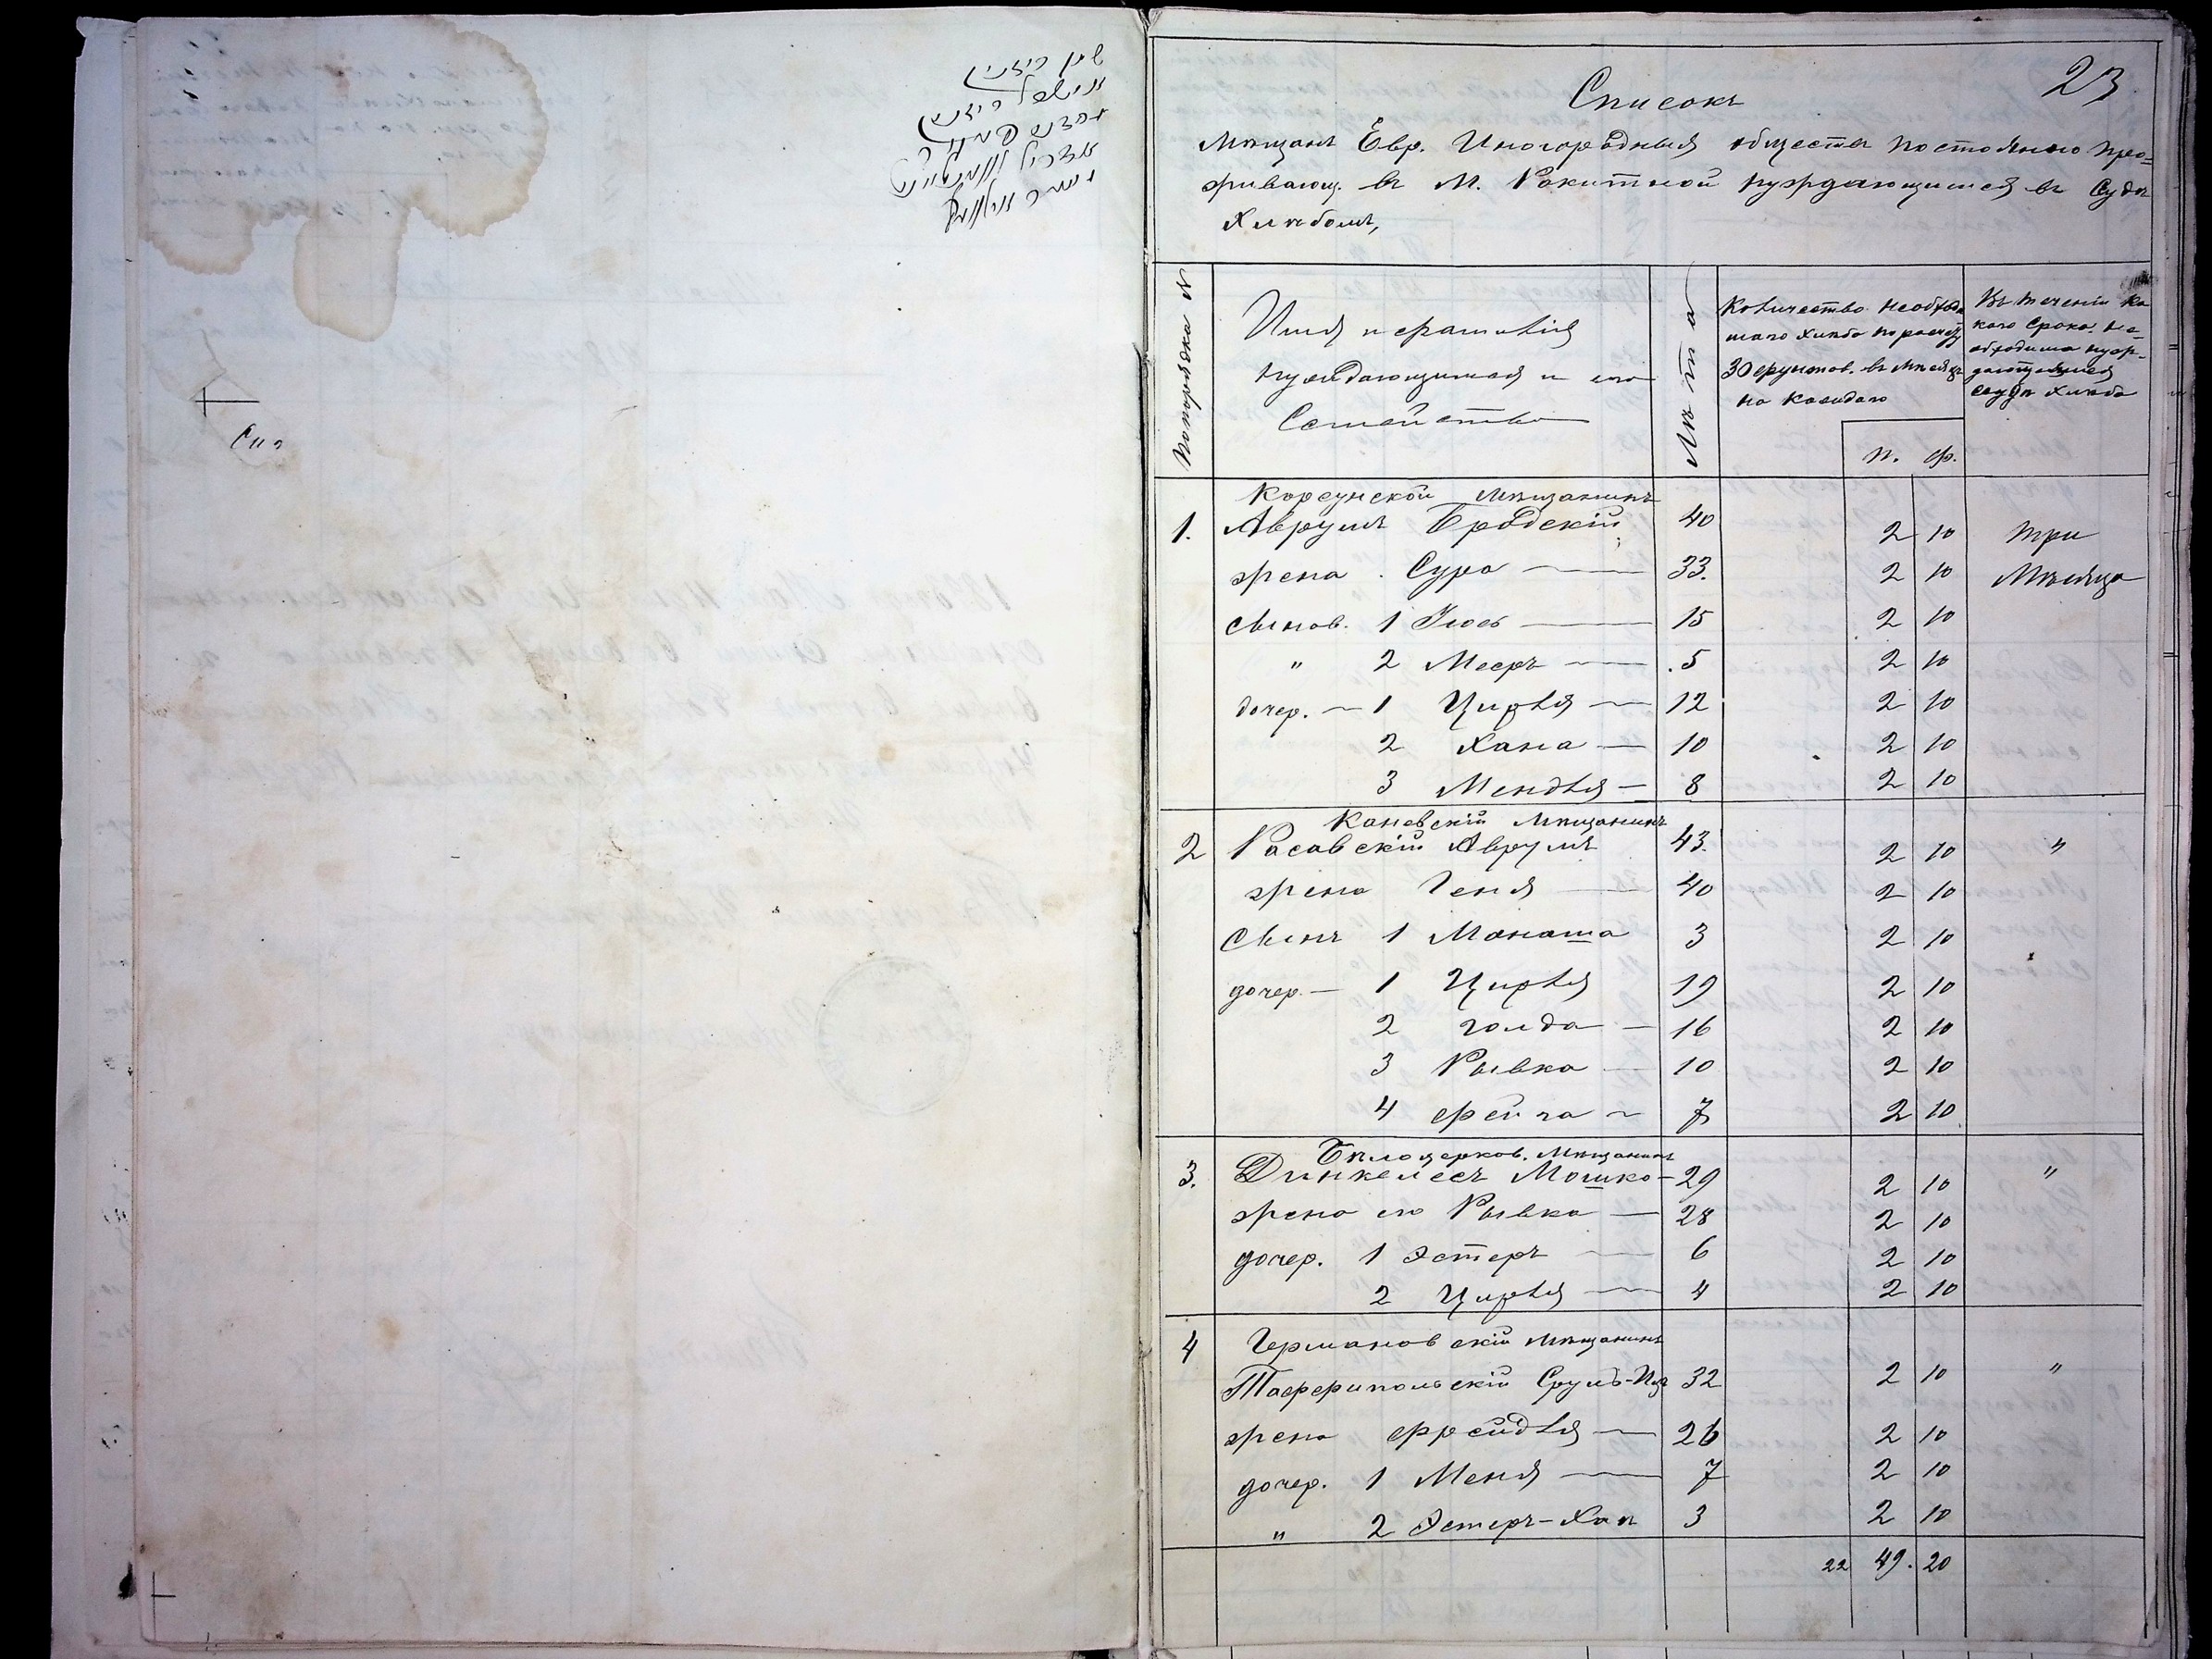 Спи
23
Списокъ
Мѣщанъ Евр. Иногородныхъ обществъ постоянно про=
живающ. въ М. Рокитной нуждающимся въ Судѣ
Хлѣбомъ,
Попорядка №
Имя и фамилія
нуждающимся и его
Семейство
Лѣта
Количество необходи
маго хлѣба по расчету
30 фунтов. въ мѣсяцъ
на каждаго
п. ф.
Въ теченіи ка
каго Срока не
обходима нуж-
дающемуся
ссуда хлѣба
Корсунской мѣщанинъ
1. Аврумъ Бродскій 40 2 10 три
жена Сура 33. 2 10 Мѣсяца
сынов. 1 Іюсь 15 2 10
" 2 Мееръ 5 2 10
дочер. 1 Цирля 12 2 10
2 Хана 10 2 10
3 Мендля 8 2 10
Каневскій мѣщанинъ
2 Расавскій Аврумъ 43. 2 10 "
жена Геня 40 2 10
Сынъ 1 Манаша 3 2 10
дочер. 1 Цирля 19 2 10
2 Голда 16 2 10
3 Рывка 10 2 10
4 Фейга 7 2 10
Бѣлоцерков. Мѣщанинъ
3. Динкелесъ Мошко 29 2 10 "
жена его Рывка 28 2 10
дочер. 1 Эстеръ 6 2 10
2 Цирля 4 2 10
4 Германовскій мѣщанинъ
Таферипольскій Сруль-Иц 32 2 10 "
жена Фрейдля 26 2 10
дочер. 1 Меня 7 2 10
" 2 Эстеръ-Хая 3 2 10
22 49. 20